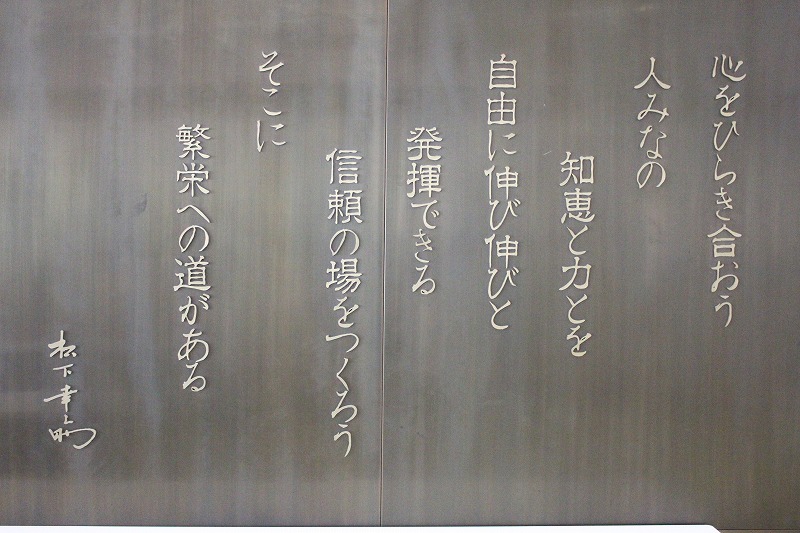 心をひらき合おう
人みなの
知恵と力とを
自由に伸び伸びと
発揮できる
信頼の場をつくろう
そこに
繁栄への道がある
松下幸之助